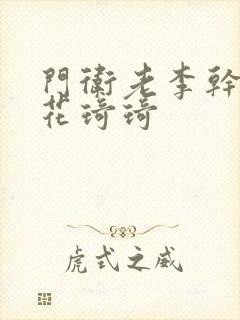 門衛老李幹
花琦琦
虎式之威